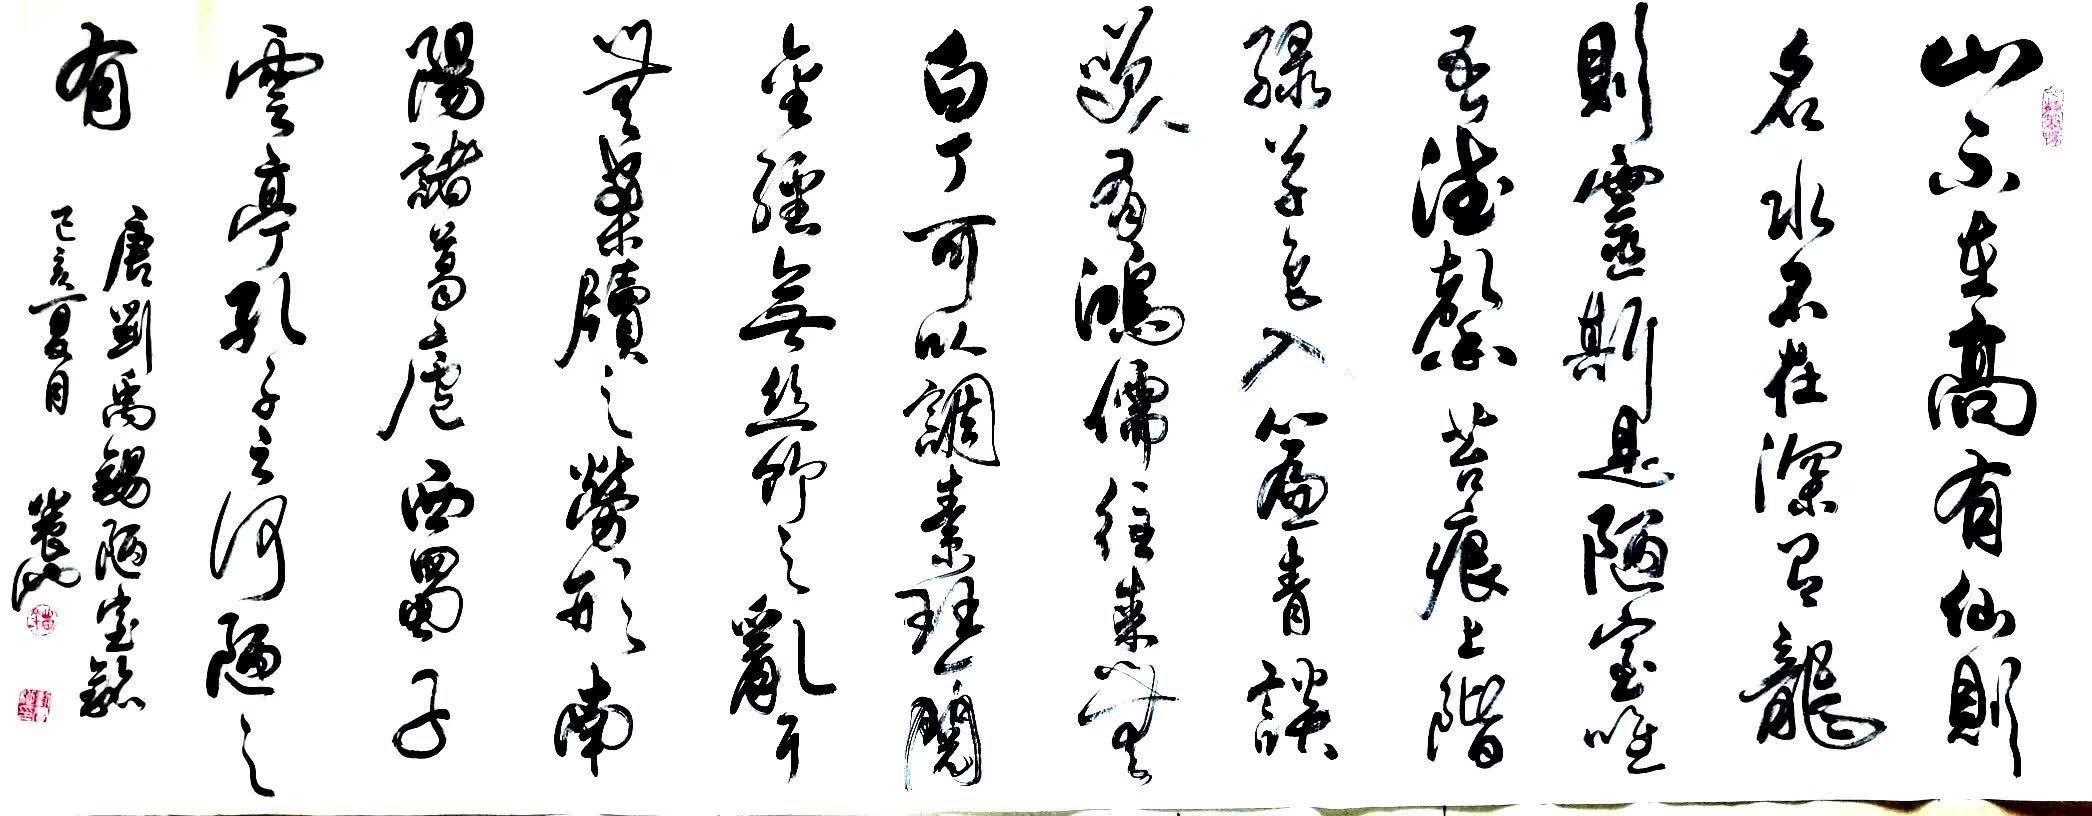 山不在高有仙則
名水不在深有龍
則靈斯是陋室唯
吾德馨苔痕上階
緑草色入簾青談
笑有鴻儒往來無
白丁可以調素琴閱
金經無絲竹之亂耳
無案牘之勞形南
陽諸葛廬西蜀子
雲亭孔子云何陋之
有
唐劉禹錫陋室銘
己亥夏月